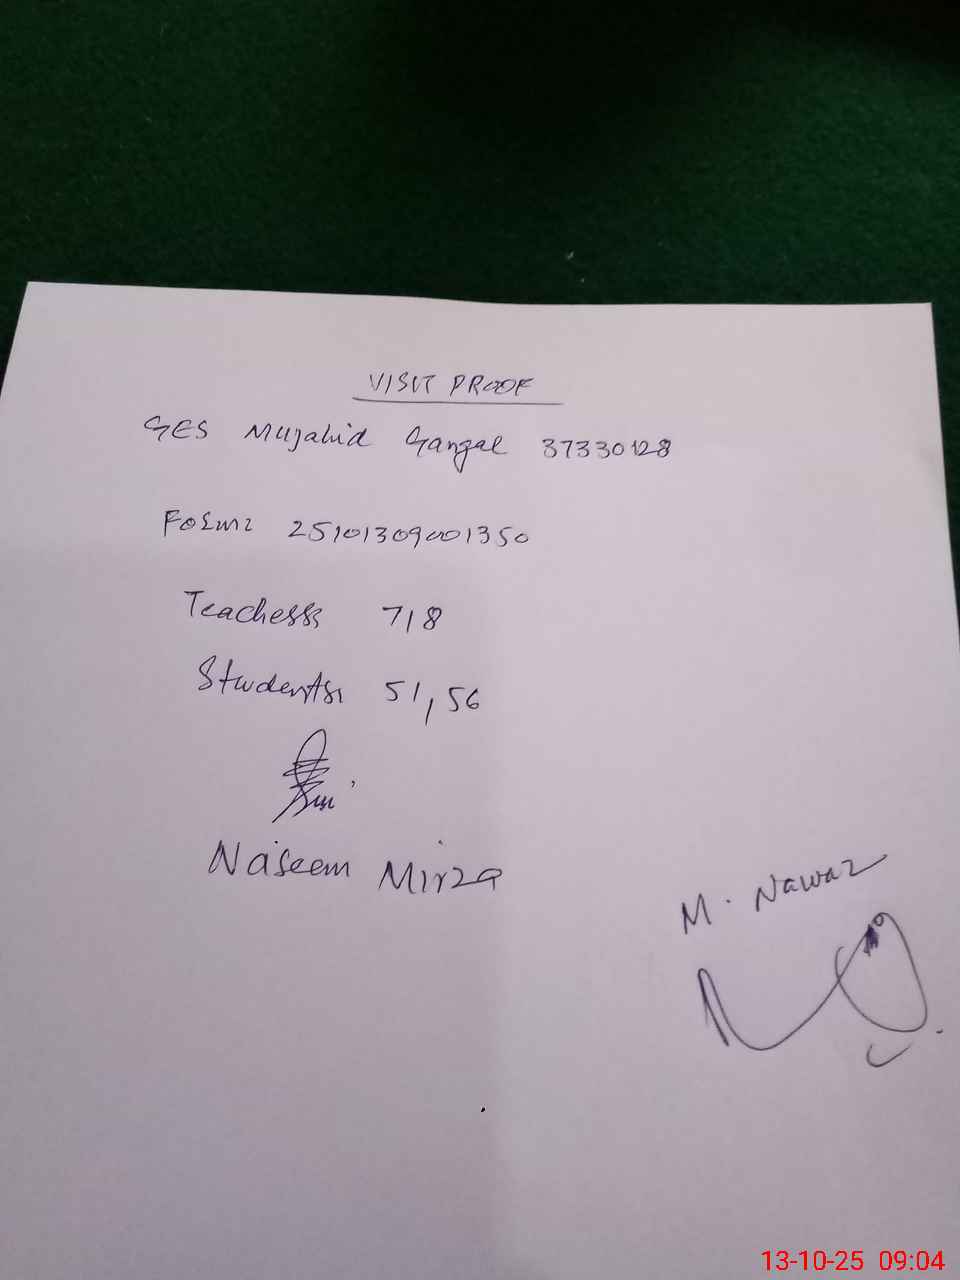 VISIT PROOF
GES Mujahid Gangal 37330128
Form: 25101309001350
Teachers: 7, 8
Students: 51, 56
Naseem Mirza
M. Nawaz
13-10-25 09:04